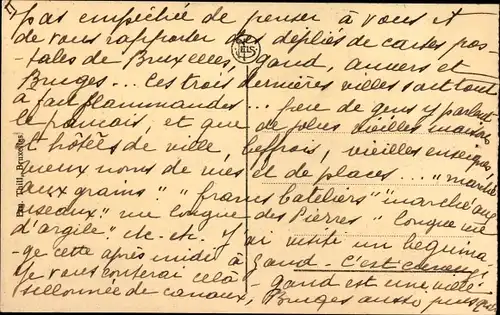 pas empêchée de penser à vous et
de vous rapporter des dépliés de cartes pos-
-tales de Bruxelles, Gand, anvers et
Bruges... Ces trois dernières villes sont tout
à fait flammandes... peu de gens y parlent
le français, et que de jolies vieilles maisons
et hôtels de ville, beffrois, vieilles enseignes
vieux noms de rues et de places... "marché
aux grains" "francs bateliers" "marché aux
oiseaux" rue longue des Pierres" longue rue
d'argile" etc. etc. J'ai visité un béguina-
-ge cette après midi à Gand - C'est curieux
Je vous conterai celà - Gand est une ville
sillonnée de canaux, Bruges aussi
Thill, Bruxelles